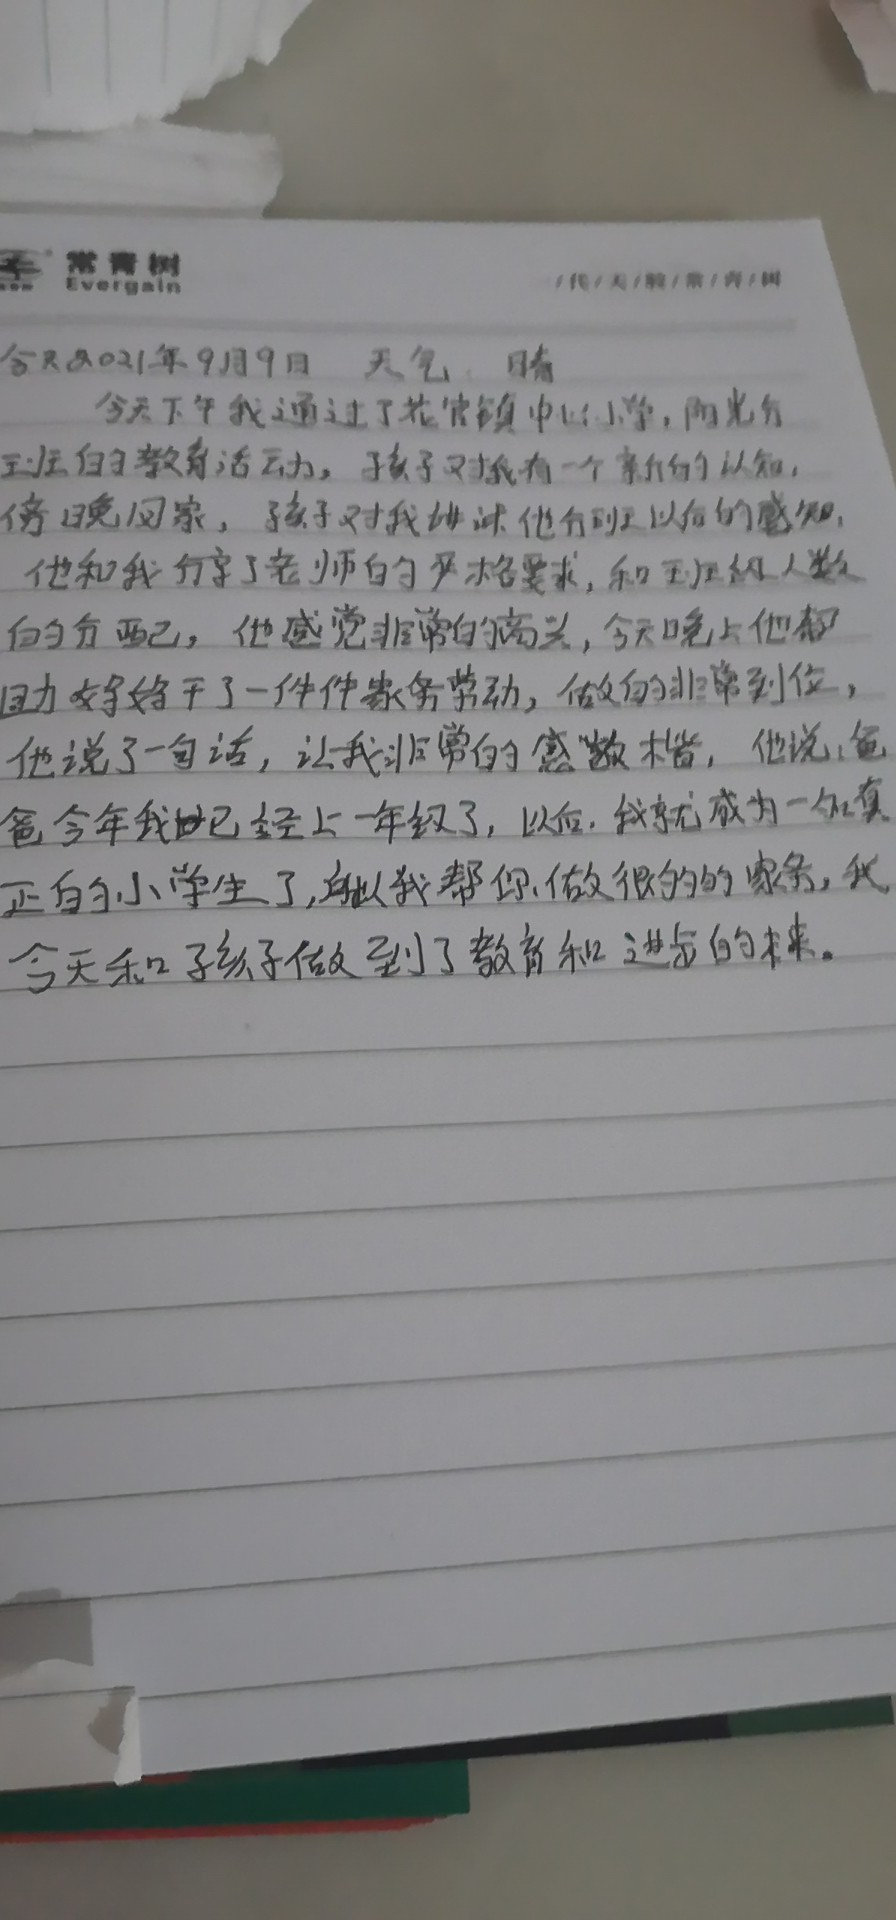 常青树
Evergain
/代/天/骄/常/青/树
今天2021年9月9日 天气 晴
今天下午我通过了花官镇中心小学，阳光分
班的教育活动，孩子对我有一个新的认知，
傍晚回家，孩子对我讲述他分班以后的感知，
他和我分享了老师的严格要求，和班级人数
的分配，他感觉非常的高兴，今天晚上他帮
助妈妈干了一件件家务劳动，做的非常到位，
他说了一句话，让我非常的感慨，他说，爸
爸今年我已经上一年级了，以后，我就成为一名真
正的小学生了，所以我帮你做很多的家务，我
今天和孩子做到了教育和进步的未来。